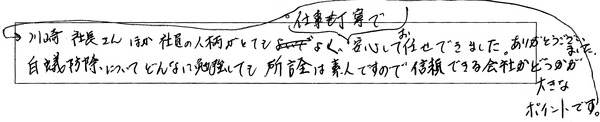 川崎社長さんほか社員の人柄がとてもよく、仕事も丁寧で安心してお任せできました。ありがとうございました。
白蟻防除についてどんなに勉強しても所詮は素人ですので信頼できる会社かどうかが
大きな
ポイントです。